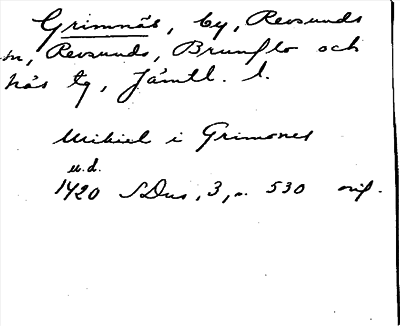 Grimnäs, by, Revsunds
sn, Revsunds, Brunflo och
Näs tg, Jämtl. l.
Mikiel i Grimanes
u.d.
1420 SDns, 3, s. 530 orig.